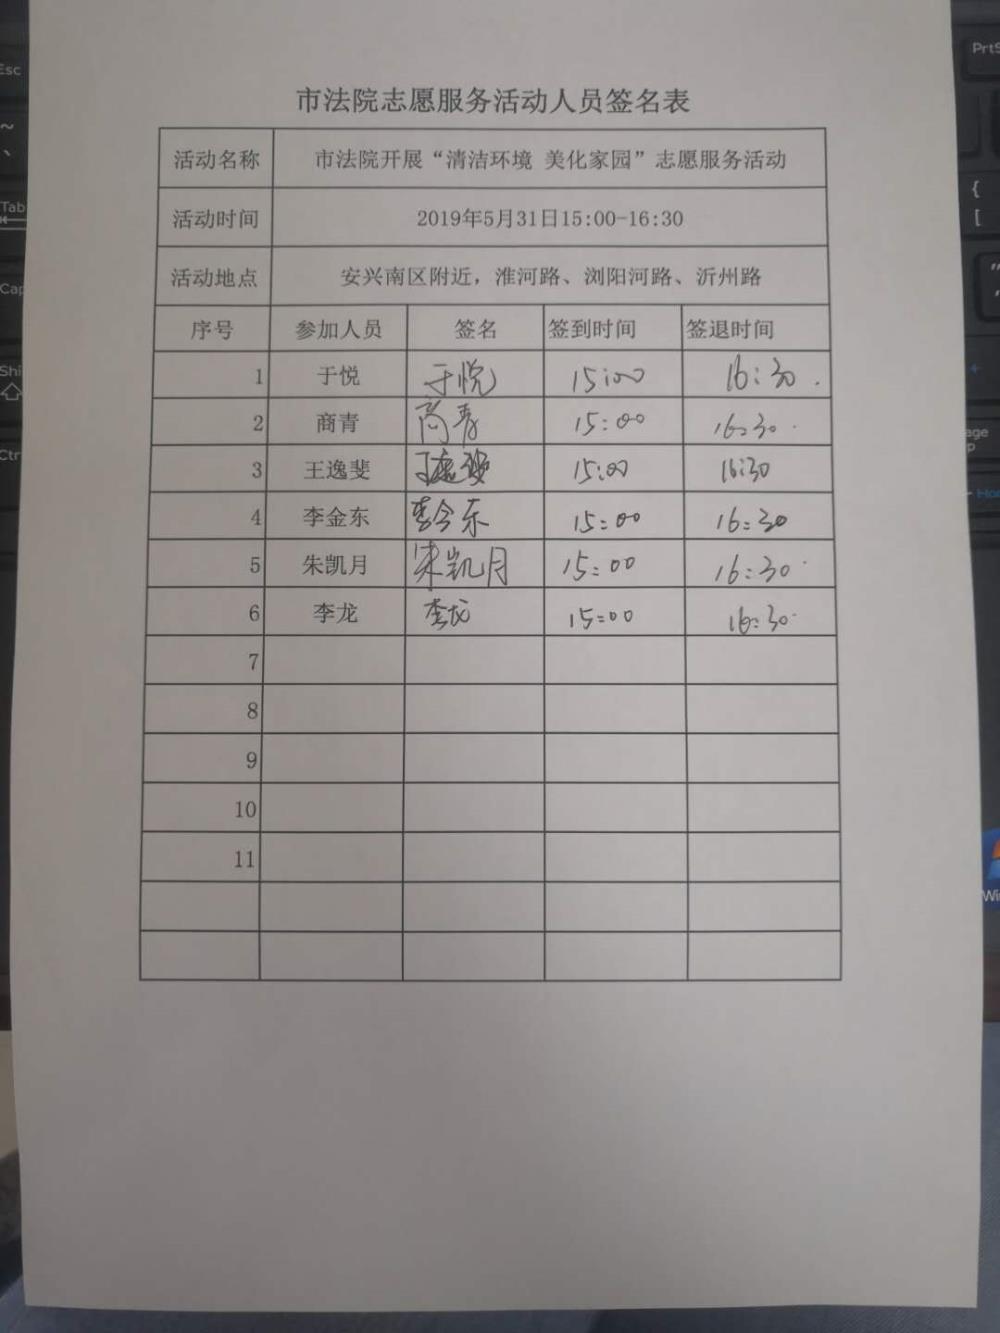 市法院志愿服务活动人员签名表
活动名称 市法院开展“清洁环境 美化家园”志愿服务活动
活动时间 2019年5月31日15:00-16:30
活动地点 安兴南区附近，淮河路、浏阳河路、沂州路
序号 参加人员 签名 签到时间 签退时间
1 于悦 于悦 15:00 16:30.
2 商青 商青 15:00 16:30.
3 王逸斐 王逸斐 15:00 16:30
4 李金东 李金东 15:00 16:30
5 朱凯月 朱凯月 15:00 16:30.
6 李龙 李龙 15:00 16:30.
7
8
9
10
11
Esc
~
、
Tab
Ctr
PrtS
{
[